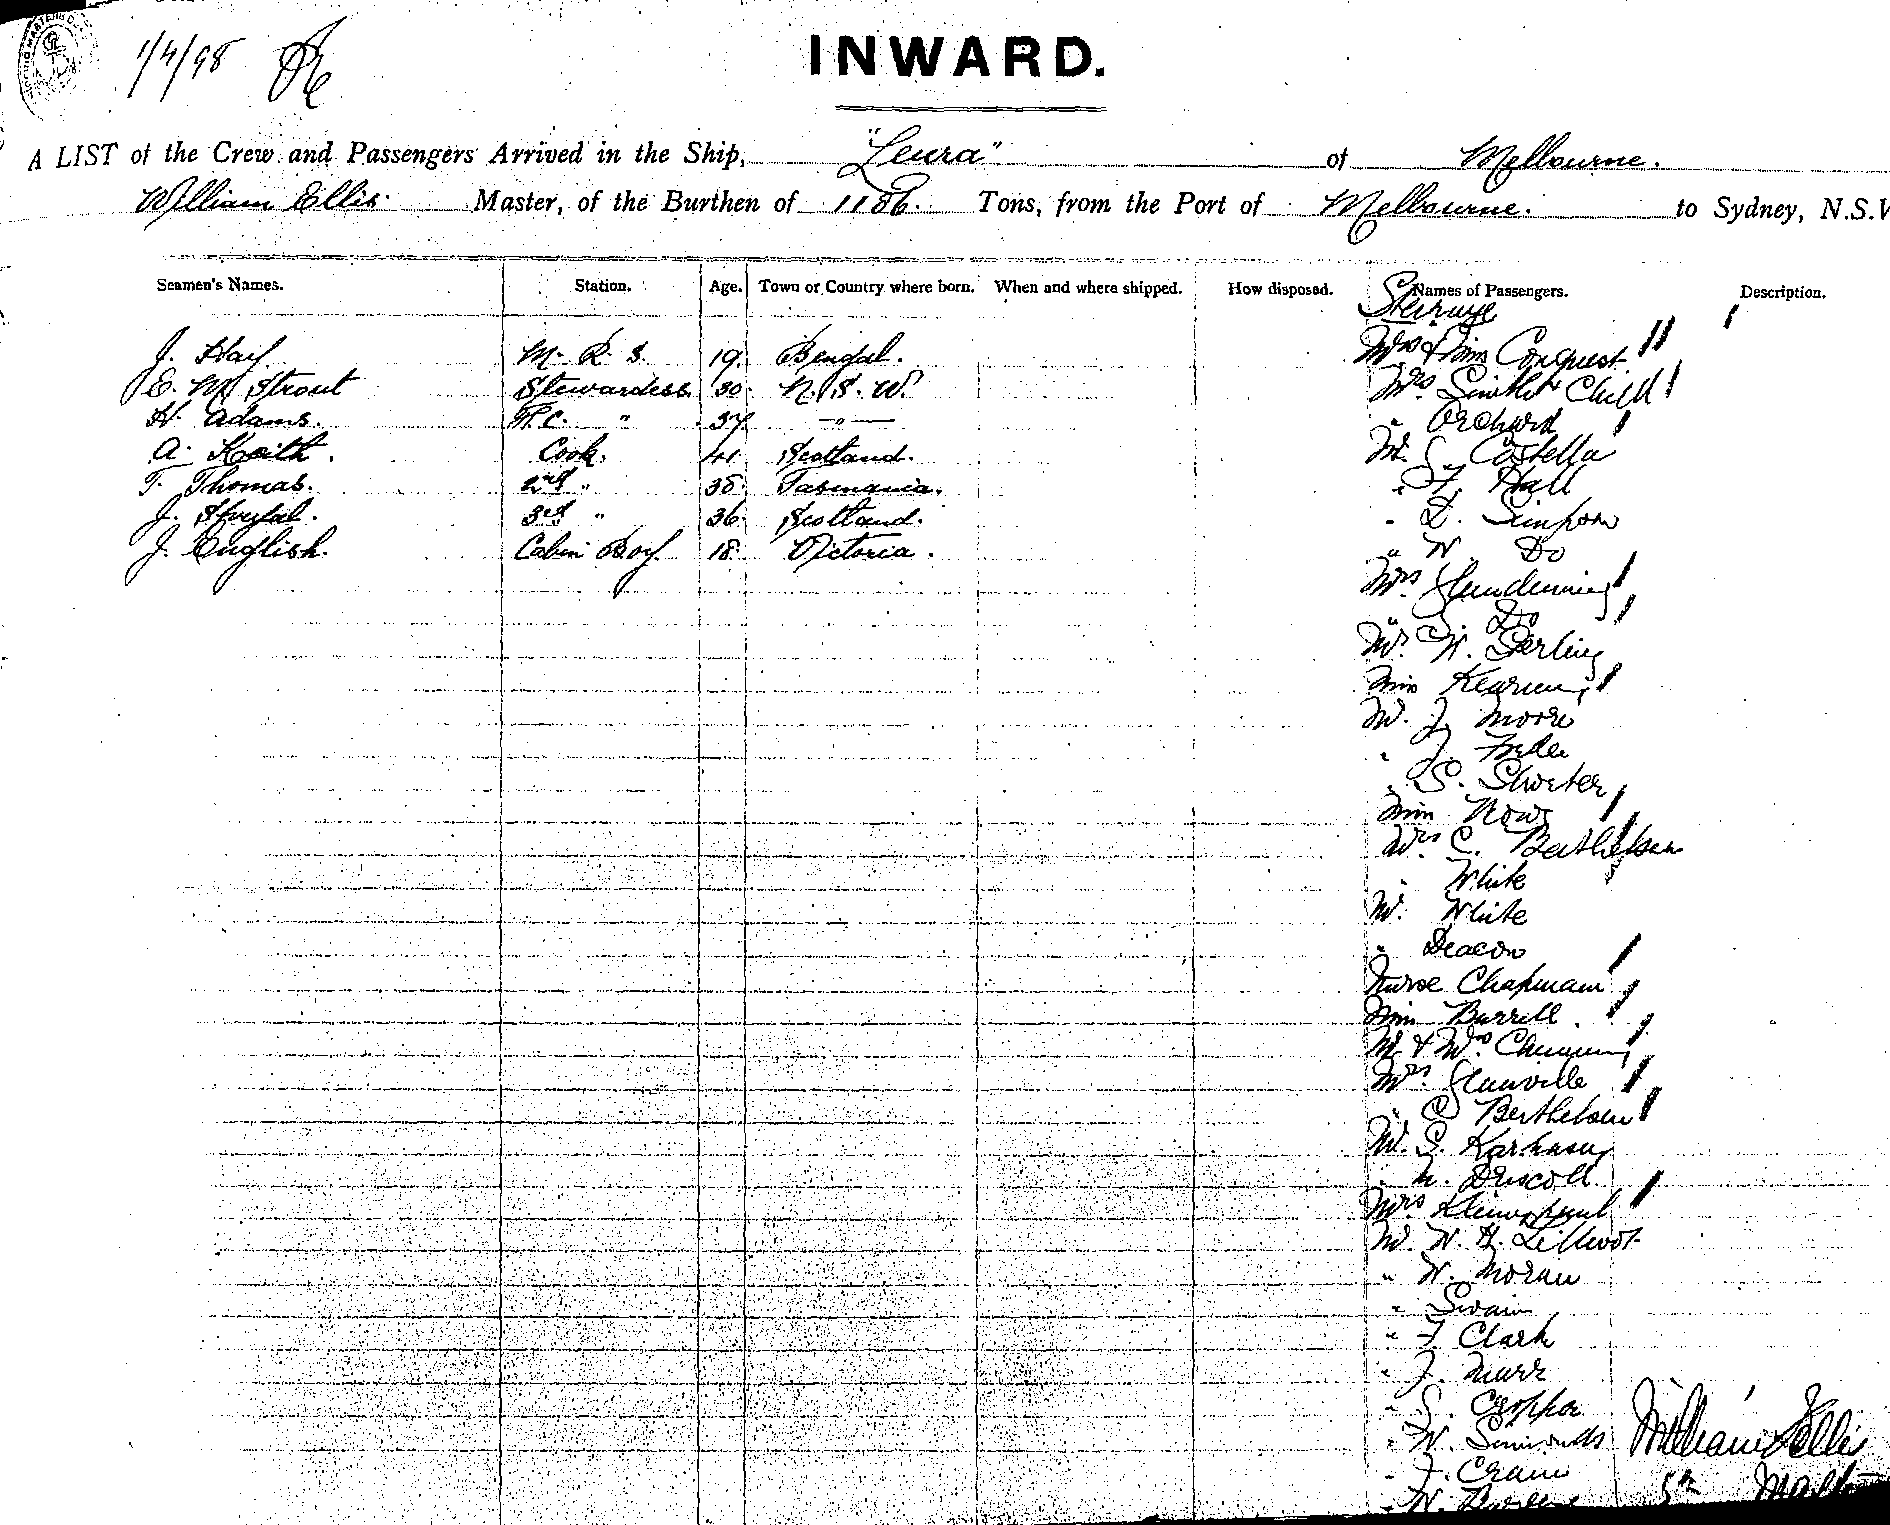 1/4/98
INWARD.
A LIST of the Crew and Passengers Arrived in the Ship, "Leura" of Melbourne.
William Ellis. Master, of the Burthen of 1186. Tons, from the Port of Melbourne. to Sydney, N.S.W
Seamen's Names. Station. Age. Town or Country where born. When and where shipped. How disposed. Names of Passengers. Description.
Steerage
J. Hay M. R. S. 19. Bengal. Mrs & Miss Conquest
E. M. Strout Stewardess 30. N. S. W. Mrs. Smith & Child
H. Adams. F.C. " 37 —"— " Orchard
A. Keith. Cook. 41 Scotland. Mr. Costella
T. Thomas. 2nd " 38 Tasmania. " Hall
J. 3rd " 36 Scotland. " Simpson
J. English. Cabin Boy. 18. Victoria. " W. Do
Mrs Glendenning
" Do
Mr. W. Gerling
Miss
Mr. J. Moore
" J.
" S. Shorter
Miss Rows
Mrs C. Berthelsen
" White
Mr. White
" Deacon
Nurse Chapman
Miss Burrell
Mr. & Mrs.
Mrs. Glanville
" C Berthelsen
Mr. S.
" M. Driscoll
Mrs
Mr. W. H.
" W. Moran
" Swain
" F. Clark
" J. Marr
" S.
" W. Simmonds
" J. Crain
" W.
William Ellis
Master